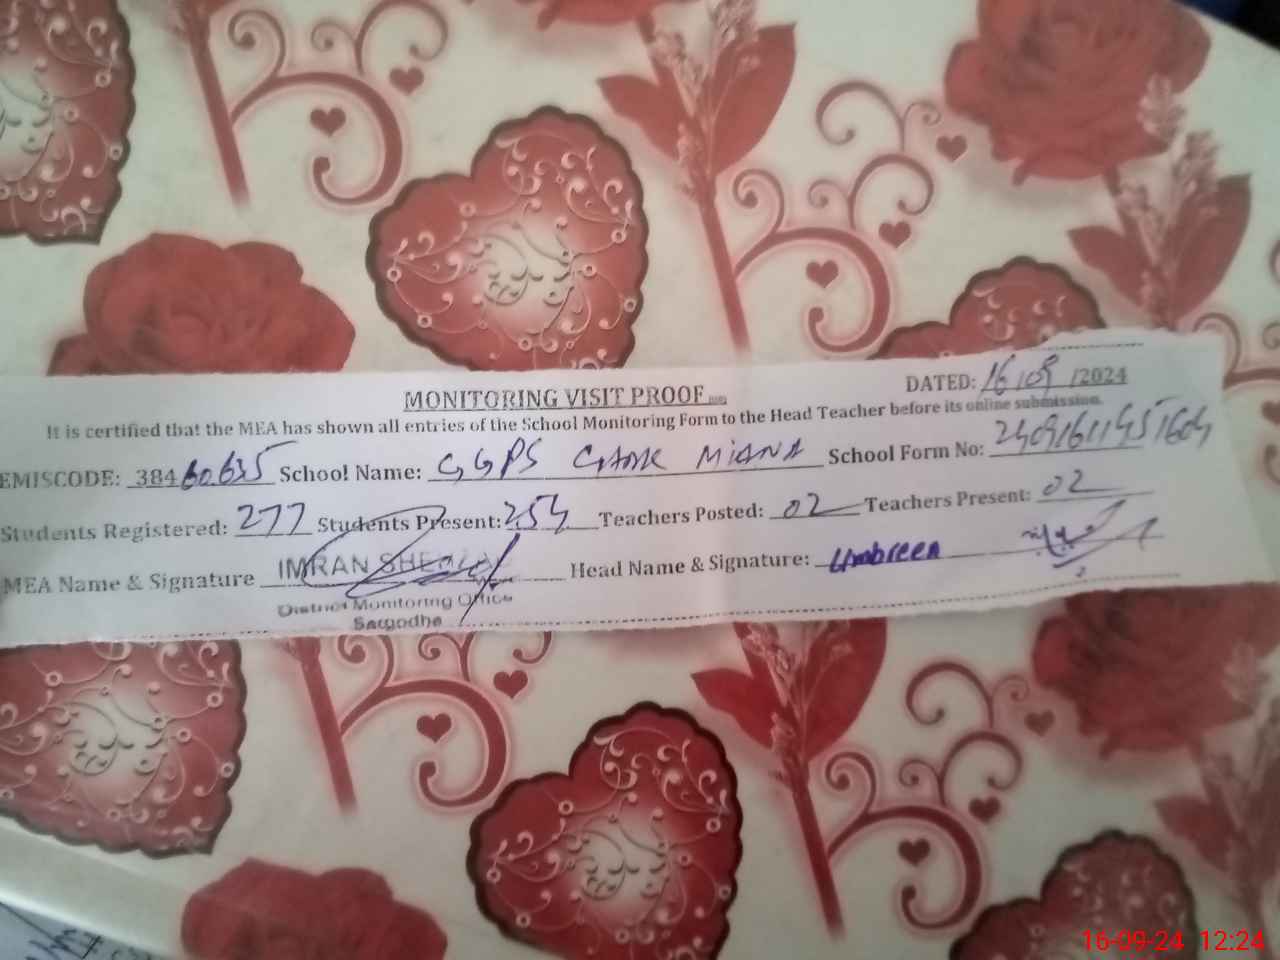 MONITORING VISIT PROOF
DATED: 16/09/2024
It is certified that the MEA has shown all entries of the School Monitoring Form to the Head Teacher before its online submission.
EMISCODE: 38460635 School Name: GGPS MIANA School Form No:
Students Registered: 277 Students Present: 254 Teachers Posted: 02 Teachers Present: 02
MEA Name & Signature IMRAN Head Name & Signature: Umbreen
District Monitoring Office
Sargodha
16-09-24 12:24